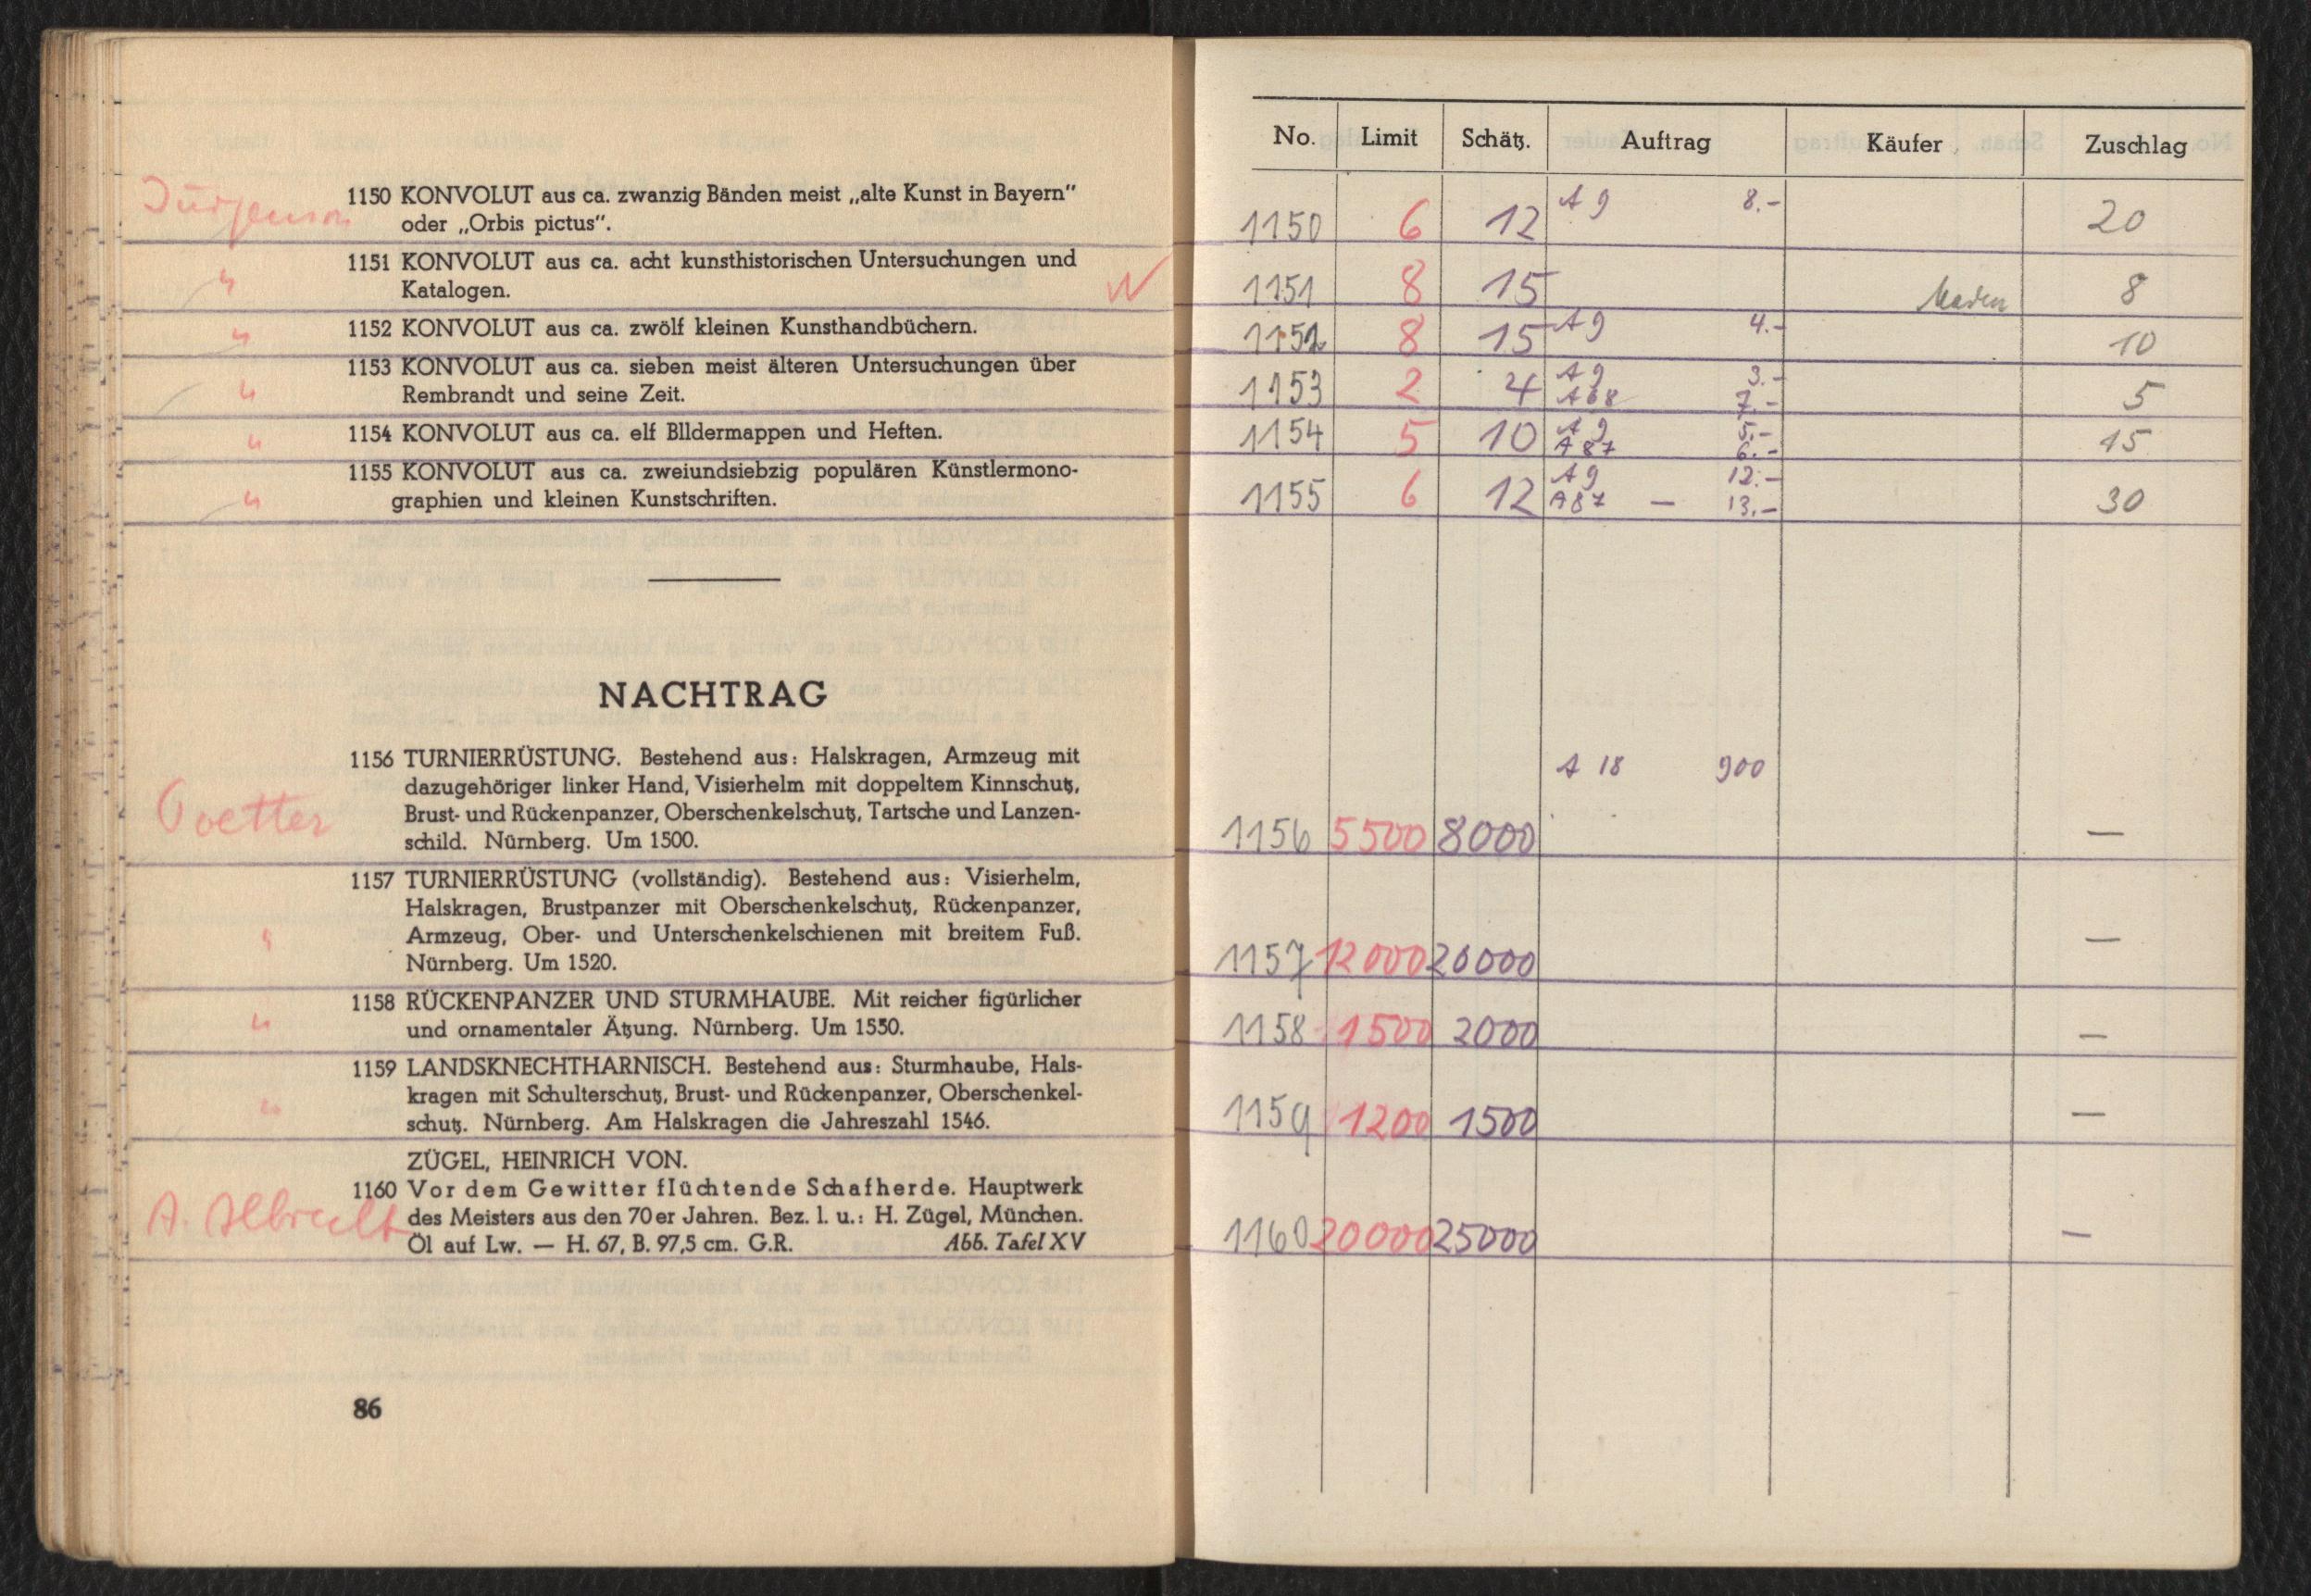 1150 KONVOLUT aus ca. zwanzig Bänden meist „alte Kunst in Bayern"
oder „Orbis pictus".
1151 KONVOLUT aus ca. acht kunsthistorischen Untersuchungen und
Katalogen.
1152 KONVOLUT aus ca. zwölf kleinen Kunsthandbüchern.
1153 KONVOLUT aus ca. sieben meist älteren Untersuchungen über
Rembrandt und seine Zeit.
1154 KONVOLUT aus ca. elf Blldermappen und Heften.
1155 KONVOLUT aus ca. zweiundsiebzig populären Künstlermono-
graphien und kleinen Kunstschriften.
NACHTRAG
1156 TURNIERRÜSTUNG. Bestehend aus: Halskragen, Armzeug mit
dazugehöriger linker Hand, Visierhelm mit doppeltem Kinnschutz,
Brust- und Rückenpanzer, Oberschenkelschutz, Tartsche und Lanzen-
schild. Nürnberg. Um 1500.
1157 TURNIERRÜSTUNG (vollständig). Bestehend aus: Visierhelm,
Halskragen, Brustpanzer mit Oberschenkelschutz, Rückenpanzer,
Armzeug, Ober- und Unterschenkelschienen mit breitem Fuß.
Nürnberg. Um 1520.
1158 RÜCKENPANZER UND STURMHAUBE. Mit reicher figürlicher
und ornamentaler Ätzung. Nürnberg. Um 1550.
1159 LANDSKNECHTHARNISCH. Bestehend aus: Sturmhaube, Hals-
kragen mit Schulterschutz, Brust- und Rückenpanzer, Oberschenkel-
schutz. Nürnberg. Am Halskragen die Jahreszahl 1546.
ZÜGEL, HEINRICH VON.
1160 Vor dem Gewitter flüchtende Schafherde. Hauptwerk
A. Albrecht des Meisters aus den 70er Jahren. Bez. l. u.: H. Zügel, München.
Öl auf Lw. — H. 67, B. 97,5 cm. G.R. Abb. Tafel XV
86
No. Limit Schätz. Auftrag Käufer Zuschlag
1150 6 12 A 9 8.- 20
1151 8 15 8
1152 8 15 A 9 4.- 10
1153 2 4 A 9 3.- 5
A 68 7.-
1154 5 10 A 9 5.- 15
A 87 6.-
1155 6 12 A 9 12.- 30
A 87 — 13.-
A 18 900
1156 5500 8000 —
1157 12000 20000 —
1158 1500 2000 —
1159 1200 1500 —
1160 20000 25000 —